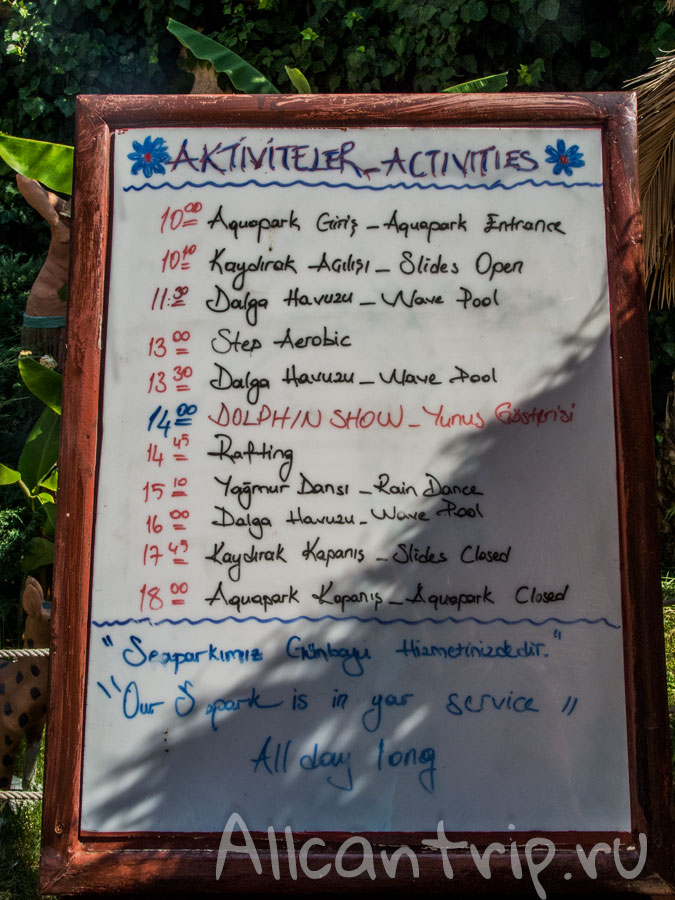 AKTİVİTELER_ACTIVITIES
10:00 Aquapark Giriş_Aquapark Entrance
10:10 Kaydırak Açılışı_Slides Open
11:30 Dalga Havuzu_Wave Pool
13:00 Step Aerobic
13:30 Dalga Havuzu_Wave Pool
14:00 DOLPHIN SHOW_Yunus Gösterisi
14:45 Rafting
15:10 Yağmur Dansı_Rain Dance
16:00 Dalga Havuzu_Wave Pool
17:45 Kaydırak Kapanış_Slides Closed
18:00 Aquapark Kapanış_Aquapark Closed
"Seaparkımız Günboyu Hizmetinizdedir."
"Our is in yor service"
All day long
Allcantrip.ru